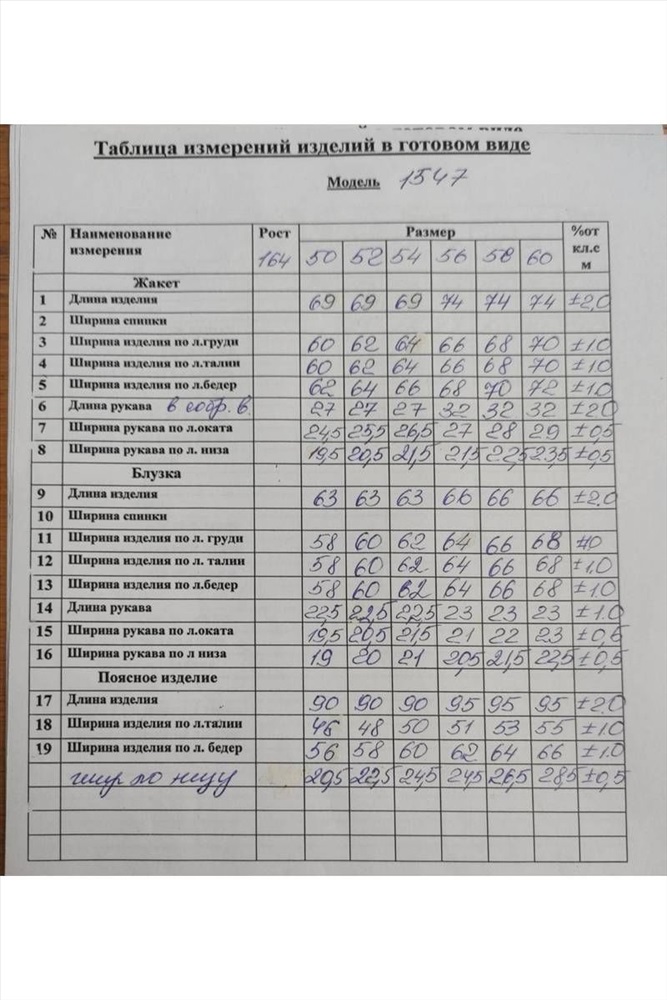 Таблица измерений изделий в готовом виде
Модель 1547
№ Наименование измерения Рост 164 Размер %от кл.с м
50 52 54 56 58 60
Жакет
1 Длина изделия 69 69 69 74 74 74 ±2,0
2 Ширина спинки
3 Ширина изделия по л.груди 60 62 64 66 68 70 ±1,0
4 Ширина изделия по л.талии 60 62 64 66 68 70 ±1,0
5 Ширина изделия по л.бедер 62 64 66 68 70 72 ±1,0
6 Длина рукава в собр. в. 27 27 27 32 32 32 ±2,0
7 Ширина рукава по л.оката 24,5 25,5 26,5 27 28 29 ±0,5
8 Ширина рукава по л. низа 19,5 20,5 21,5 21,5 22,5 23,5 ±0,5
Блузка
9 Длина изделия 63 63 63 66 66 66 ±2,0
10 Ширина спинки
11 Ширина изделия по л. груди 58 60 62 64 66 68
12 Ширина изделия по л. талии 58 60 62 64 66 68 ±1,0
13 Ширина изделия по л.бедер 58 60 62 64 66 68 ±1,0
14 Длина рукава 22,5 22,5 22,5 23 23 23 ±1,0
15 Ширина рукава по л.оката 19,5 20,5 21,5 21 22 23 ±0,5
16 Ширина рукава по л низа 19 20 21 20,5 21,5 22,5 ±0,5
Поясное изделие
17 Длина изделия 90 90 90 95 95 95 ±2,0
18 Ширина изделия по л.талии 46 48 50 51 53 55 ±1,0
19 Ширина изделия по л. бедер 56 58 60 62 64 66 ±1,0
шир по низу 20,5 22,5 24,5 24,5 26,5 28,5 ±0,5